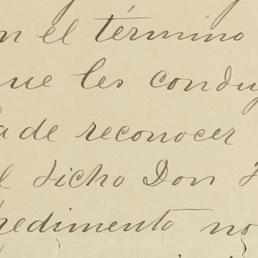 n el término
que les conduj
a de reconocer
l dicho Don
pedimento no